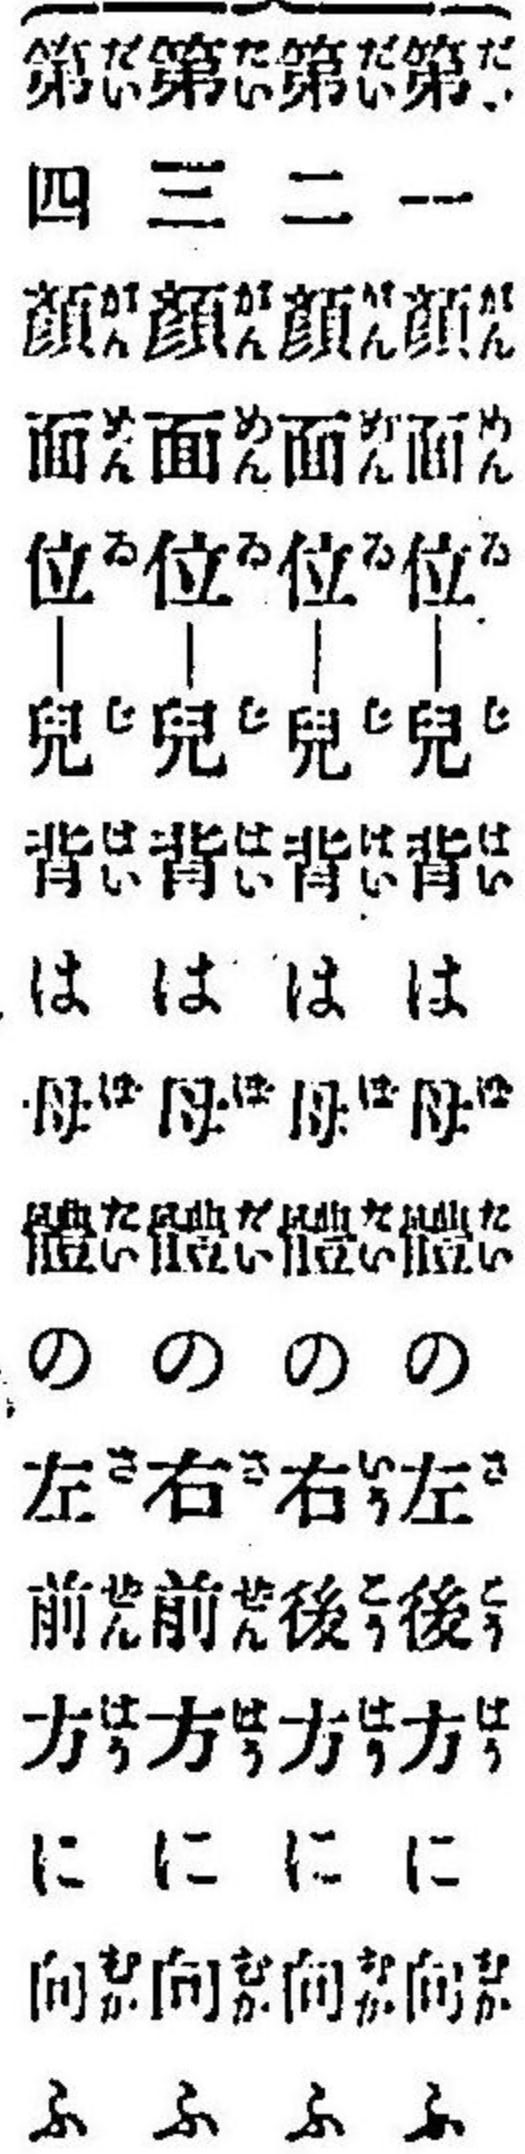 第一顏面位―兒背は母體の左後方に向ふ
第二顏面位―兒背は母體の右後方に向ふ
第三顏面位―兒背は母體の右前方に向ふ
第四顏面位―兒背は母體の左前方に向ふ